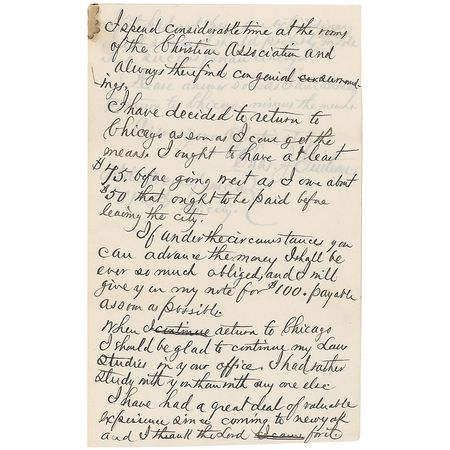 I spend considerable time at the rooms
of the Christian Association and
always there find congenial surround
ings.
I have decided to return to
Chicago as soon as I can get the
means. I ought to have at least
$75. before going west as I owe about
$50 that ought to be paid before
leaving the city.
If under the circumstances you
can advance the money I shall be
ever so much obliged, and I will
give you my note for $100. payable
as soon as possible.
When I continue return to Chicago
I should be glad to continue my Law
studies in your office. I had rather
study with you than with any one else
I have had a great deal of valuable
experience since coming to new york
and I thank the Lord I came for it.